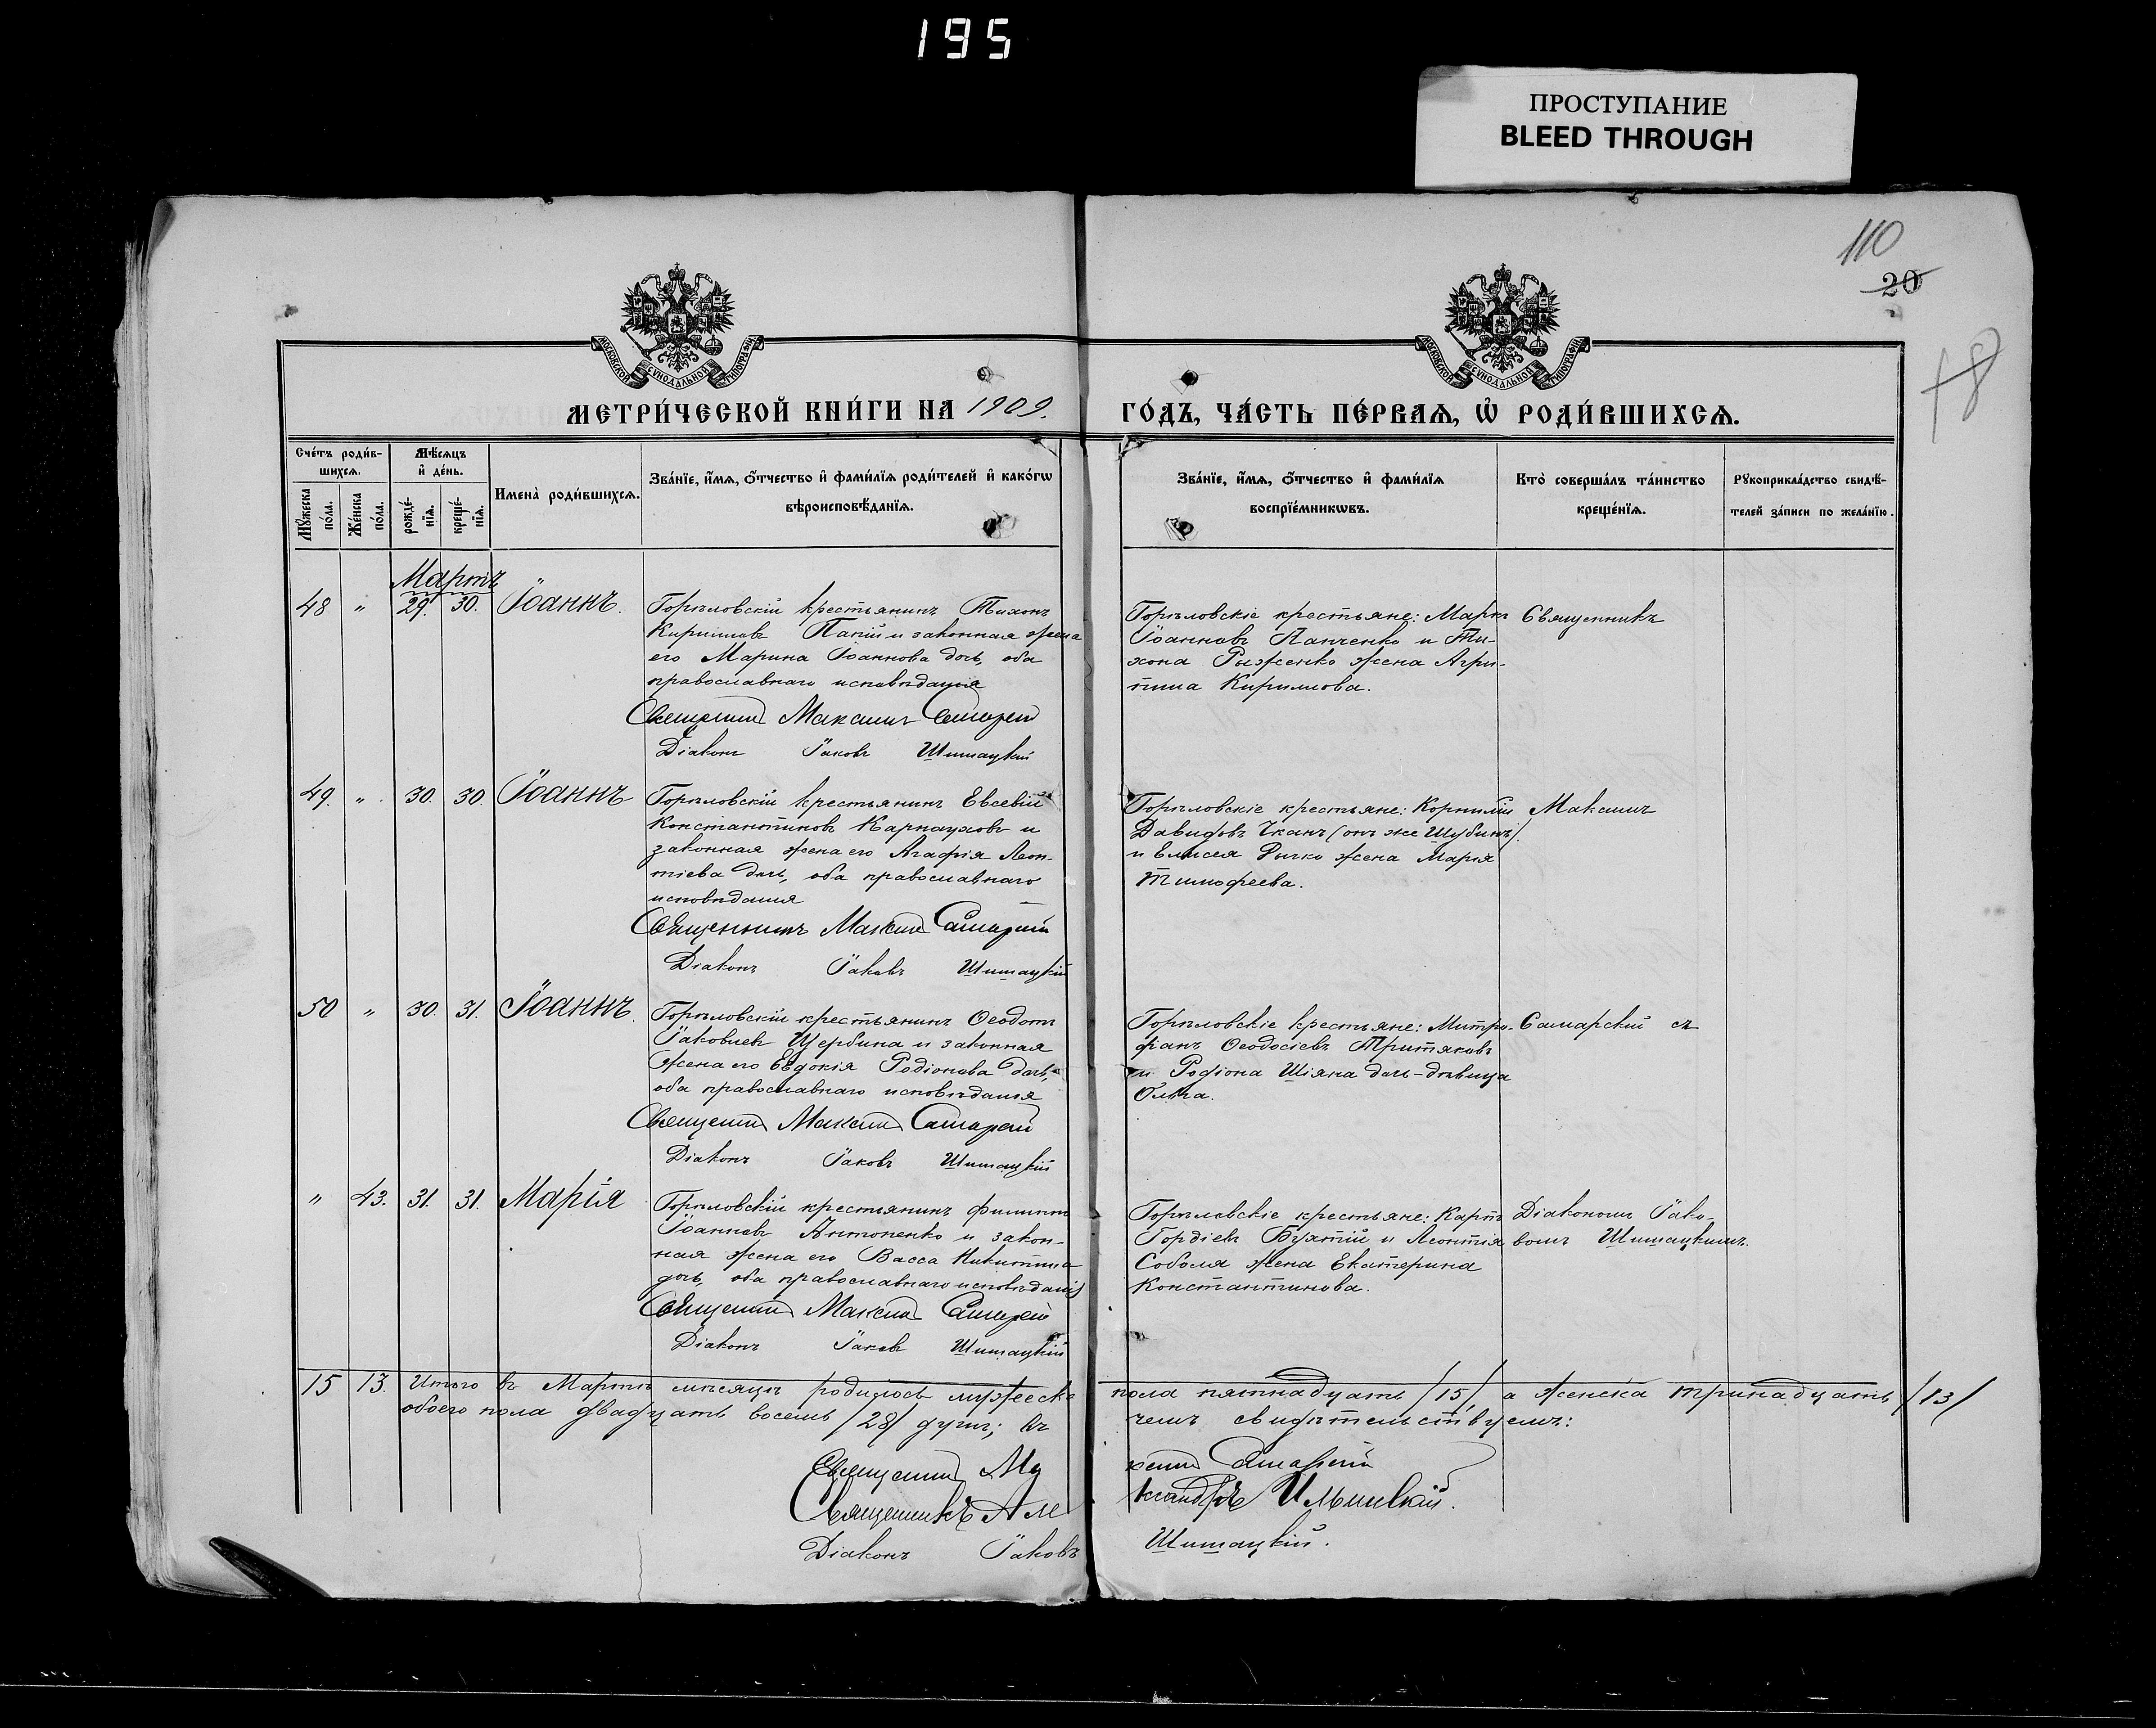 195
ПРОСТУПАНИЕ
BLEED THROUGH
110
20
МОСКОВСКОЙ СѴНОДАЛЬНОЙ ТИПОГРАФІИ
МОСКОВСКОЙ СѴНОДАЛЬНОЙ ТИПОГРАФІИ
МЕТРИ́ЧЕСКОЙ КНИ́ГИ НА 1909. ГО́ДЪ, ЧА́СТЬ ПЕ́РВАѦ, Ѡ҆ РОДИ́ВШИХСѦ.
Сче́тъ роди́в-
шихсѧ.
Мѣ́сѧцъ
и҆ де́нь.
Мꙋ́жеска
по́ла.
Же́нска
по́ла.
рожде́-
нїѧ.
креще́-
нїѧ.
Имена̀ роди́вшихсѧ.
Зва́нїе, и҆́мѧ, ѻ҆́тчество и҆ фами́лїѧ роди́телей и҆ како́гѡ
вѣроисповѣ́данїѧ.
Зва́нїе, и҆́мѧ, ѻ҆́тчество и҆ фами́лїѧ
воспрїе́мникѡвъ.
Кто̀ соверша́лъ та́инство
креще́нїѧ.
Рꙋкоприкла́дство свидѣ́-
телей за́писи по жела́нїю.
Мартъ
48 " 29. 30. Іоаннъ.
Горѣловскій крестьянинъ Тихонъ
Кирилловъ Папій и законная жена
его Марина Іоаннова дочь, оба
православнаго исповѣданія
Священникъ Максимъ Самарскій
Діаконъ Іаковъ Шишацкій
Горѣловскіе крестьяне: Маркъ
Іоанновъ Панченко и Ти-
хона Рыженко жена Агри-
пина Кириллова.
Священникъ
49. " 30. 30. Іоаннъ
Горѣловскій крестьянинъ Евсевій
Константиновъ Карнауховъ и
законная жена его Агафія Леон-
тіева дочь, оба православнаго
исповѣданія
Священникъ Максимъ Самарскій
Діаконъ Іаковъ Шишацкій
Горѣловскіе крестьяне: Корнилій
Давидовъ Ткачъ (онъ же Шубинъ)
и Елисея Рычко жена Марія
Тимофеева.
Максимъ
50 " 30. 31. Іоаннъ.
Горѣловскій крестьянинъ Ѳеодотъ
Іаковлевъ Щербина и законная
жена его Евдокія Родіонова дочь,
оба православнаго исповѣданія
Священникъ Максимъ Самарскій
Діаконъ Іаковъ Шишацкій
Горѣловскіе крестьяне: Митро-
фанъ Ѳеодосіевъ Тритяковъ
и Родіона Шіяна дочь-дѣвица
Ольга.
Самарскій съ
" 43. 31. 31. Марія
Горѣловскій крестьянинъ Филиппъ
Іоанновъ Антоненко и закон-
ная жена его Васса Никитина
дочь, оба православнаго исповѣданія
Священникъ Максимъ Самарскій
Діаконъ Іаковъ Шишацкій
Горѣловскіе крестьяне: Карпъ
Гордіевъ Бухтій и Леонтія
Соболя жена Екатерина
Константинова.
Діакономъ Іако-
вомъ Шишацкимъ.
15 13. Итого въ Мартѣ мѣсяцѣ родилось мужеска пола пятнадцать /15/, а женска тринадцать /13/
обоего пола двадцать восемь /28/ душъ; въ чемъ свидѣтельствуемъ:
Священникъ Максимъ Самарскій
Священникъ Александръ Ильницкій.
Діаконъ Іаковъ Шишацкій.